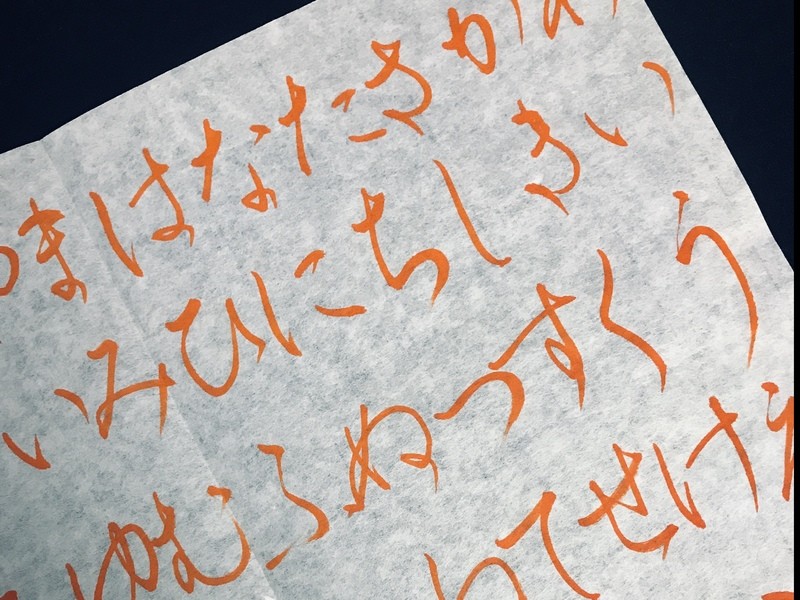 いう
かきくけ
さしすせ
たちつて
なにぬ
はひふ
まみむ
いゆ